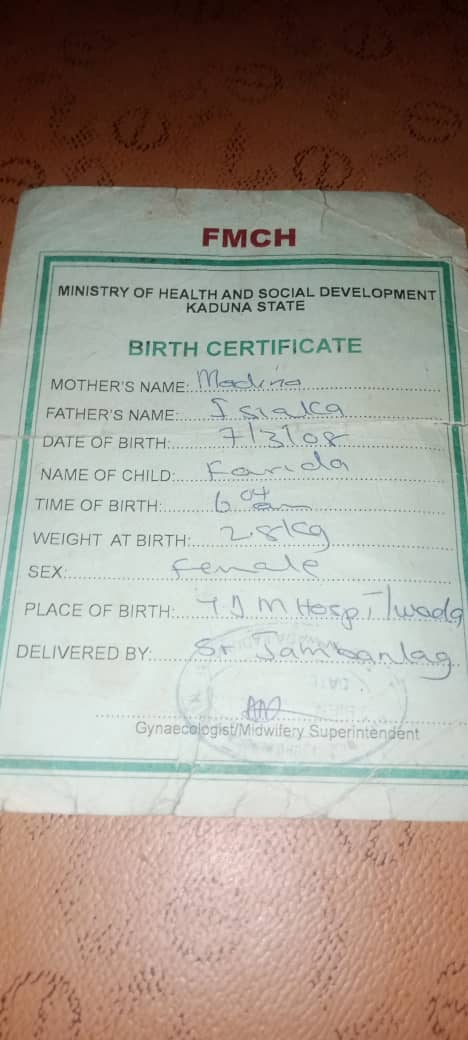 FMCH
MINISTRY OF HEALTH AND SOCIAL DEVELOPMENT
KADUNA STATE
BIRTH CERTIFICATE
MOTHER'S NAME: Madina
FATHER'S NAME: Isiaka
DATE OF BIRTH: 7/3/08
NAME OF CHILD: Farida
TIME OF BIRTH: 6 04 am
WEIGHT AT BIRTH: 2.8kg
SEX: female
PLACE OF BIRTH: Hosp
DELIVERED BY: Sr
Gynaecologist/Midwifery Superintendent